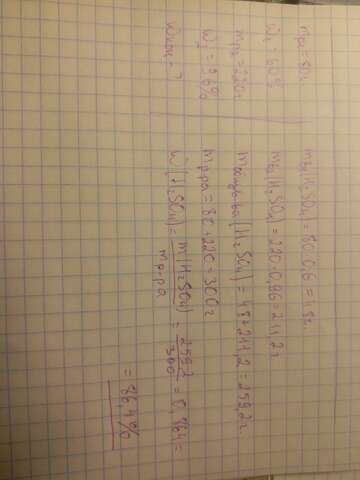 mр₁ = 80г
W₁ = 60%
mр₂ = 220г
W₂ = 96%
Wкон - ?
m₁(H₂SO₄) = 80·0,6 = 48г.
m₂(H₂SO₄) = 220·0,96 = 211,2г
m (H₂SO₄) = 48+211,2 = 259,2г.
mр-ра = 80+220 = 300г
W(H₂SO₄) = m(H₂SO₄) / mр-ра = 259,2 / 300 = 0,864 =
= 86,4%